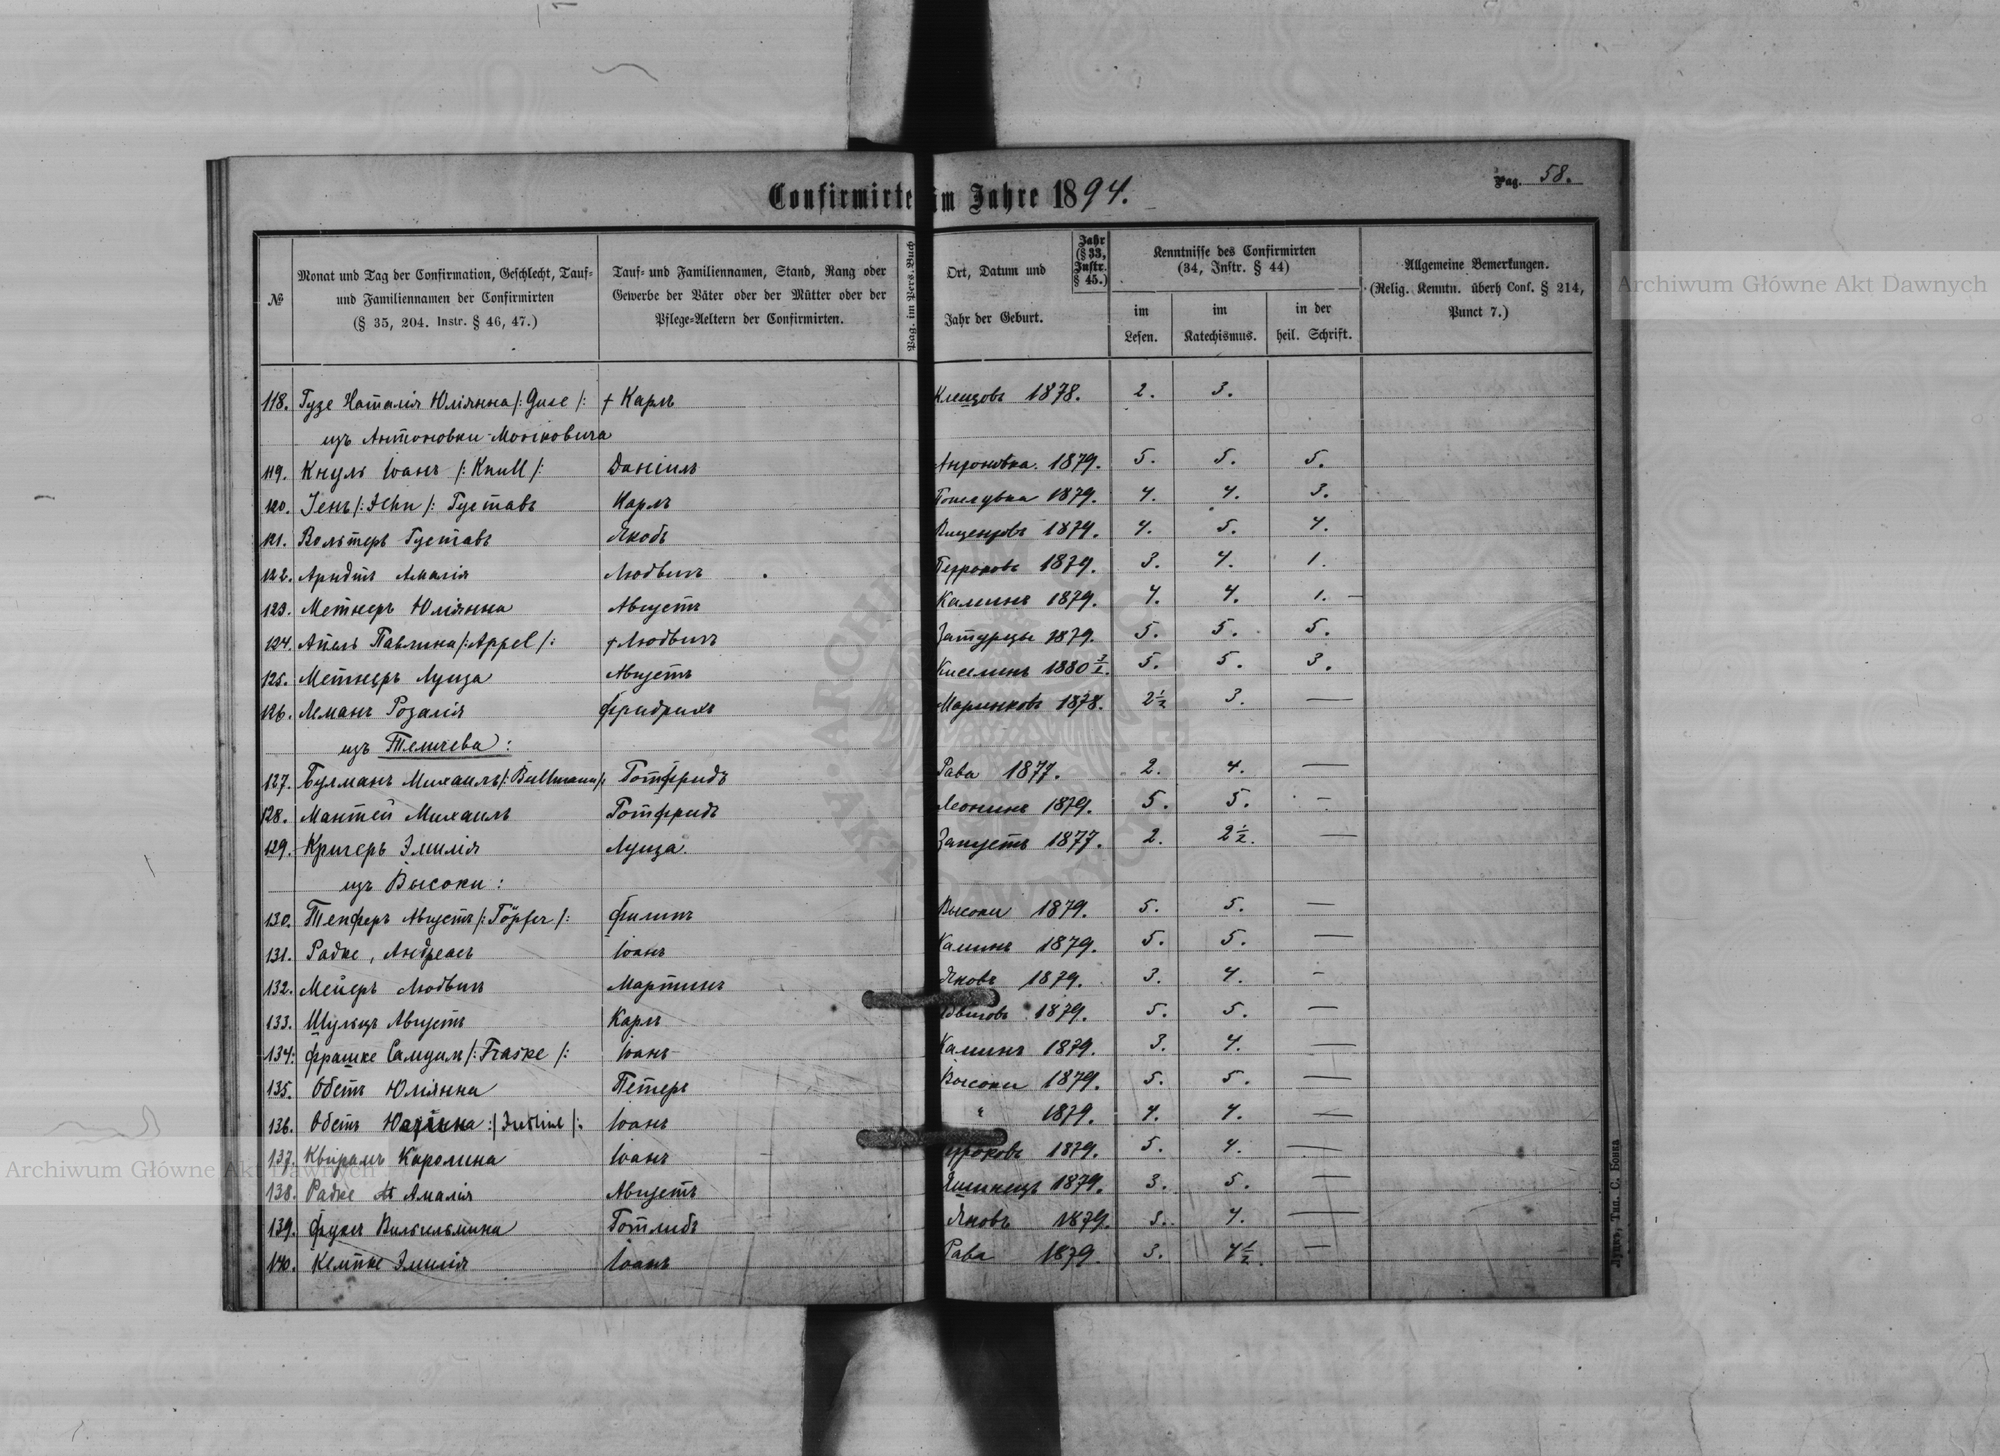 Confirmirte im Jahre 1894.
Pag. 58.
№
Monat und Tag der Confirmation, Geschlecht, Tauf-
und Familiennamen der Confirmirten
(§ 35, 204. Instr. § 46, 47.)
Tauf- und Familiennamen, Stand, Rang oder
Gewerbe der Väter oder der Mütter oder der
Pflege-Aeltern der Confirmirten.
Pag. im Pers. Buch
Ort, Datum und
Jahr der Geburt.
Jahr
(§ 33,
Instr.
§ 45.)
Kenntnisse des Confirmirten
(34, Instr. § 44)
im
Lesen.
im
Katechismus.
in der
heil. Schrift.
Allgemeine Bemerkungen.
(Relig. Kenntn. überh Conf. § 214,
Punct 7.)
118. Гузе Наталія Юліянна /: Guse /: † Карлъ Клещовъ 1878. 2. 3.
изъ Антоновки-Мосіковича
119. Кнулъ Іоанъ /: Knull /: Даніилъ 1879. 5. 5. 5.
120. Іенъ /: Jehn /: Густавъ Карлъ 1879. 4. 4. 3.
121. Вольтеръ Густавъ Якобъ 1879. 4. 5. 4.
122. Арндтъ Амалія Людвигъ 1879. 3. 4. 1.
123. Метнеръ Юліянна Августъ Калинъ 1879. 4. 4. 1. —
124. Апель Павлина /: Appel /: † Людвигъ Затурцы 1879. 5. 5. 5.
125. Метнеръ Луиза Августъ Киселинъ 1880 5. 5. 3.
126. Леманъ Розалія Фридрихъ Маринковъ 1878. 2½ 3. —
изъ Телчева :
127. Булманъ Михаилъ /: Bullmann /: Готфридъ Рава 1877. 2. 4. —
128. Мантей Михаилъ Готфридъ Леонинъ 1879. 5. 5. —
129. Кригеръ Эмилія Луиза. Запустъ 1877. 2. 2½. —
изъ Высоки :
130. Тепферъ Августъ /: Töpfer /: Филипъ Высоки 1879. 5. 5. —
131. Радке, Андреасъ Іоанъ Калинъ 1879. 5. 5. —
132. Мейеръ Людвигъ Мартинъ Яновъ 1879. 3. 4. —
133. Шульцъ Августъ Карлъ 1879. 5. 5. —
134. Фрашке Самуилъ /: Fraske /: Іоанъ Калинъ 1879. 3. 4. —
135. Обетъ Юліянна Петеръ Высоки 1879. 5. 5. —
136. Обетъ Іоанъ " 1879. 4. 4. —
137. Квирамъ Каролина Іоанъ 1879. 5. 4. —
138. Радке Амалія Августъ 1879. 3. 5. —
139. Фуксъ Вильгельмина Готлибъ Яновъ 1879. 3. 4. —
140. Кемпке Эмилія Іоанъ Рава 1879. 3. 4½. —
Луцкъ, Тип. С. Бонка
Archiwum Główne Akt Dawnych
Archiwum Główne Akt Dawnych